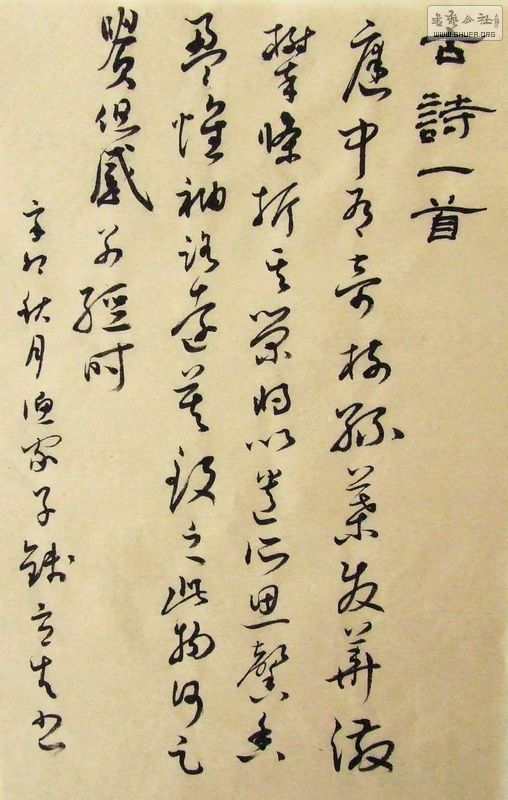 书艺公社
WWW.SHUFA.ORG
古詩一首
庭中有奇樹綠葉發華滋
攀條折其榮將以遺所思馨香
盈懷袖路遠莫致之此物何足
貴但感別經時
辛卯秋月漁家子錢立書